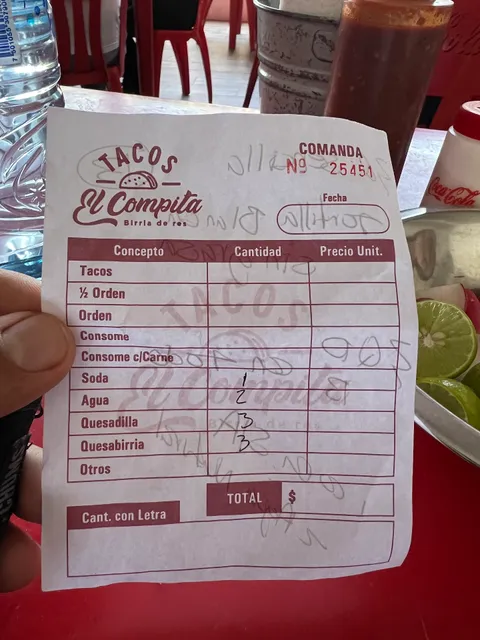 TACOS
El Compita
Birria de res
COMANDA
Nº 25451
Fecha
Concepto Cantidad Precio Unit.
Tacos
½ Orden
Orden
Consome
Consome c/Carne
Soda 1
Agua 2
Quesadilla 3
Quesabirria 3
Otros
TOTAL $
Cant. con Letra
Coca-Cola